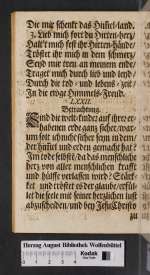 Die mir schenkt das Himmel-land.
3. Lieb mich fort du Hirten-hertz/
Halt't mich fest ihr Hirten-hände/
Tröstet ihr mich in dem schmertz/
Seyd mir treu an meinem ende/
Traget mich durch lieb und leyd/
Durch die tod- und lebens-zeit/
In die ewge Himmels-Freud.
LXXII.
Betrachtung.
Sind die welt-kinder auf ihre er-
habenen erde gantz sicher/war-
um solt ich nicht sicher seyn in dem/
der himmel und erden gemacht hat?
Im tode selbst/da das menschliche
hertz von aller menschlichen krafft
und hülffe verlassen wird? Stärck-
ket und tröstet es der glaube/erfül-
let die seele mit seiner hertzlichen lust
abzuscheiden/und bey JEsu Christo
zu
Herzog August Bibliothek Wolfenbüttel